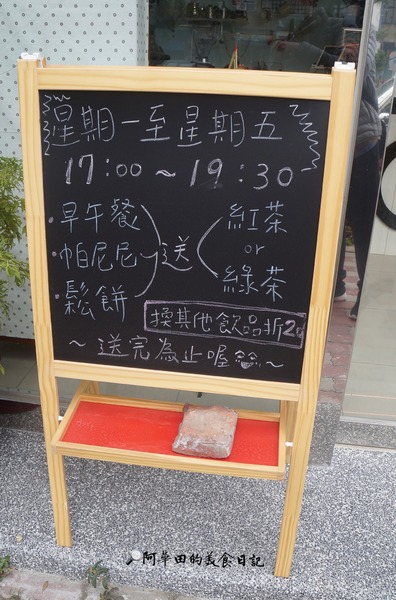 星期一至星期五
17:00~19:30
早午餐
帕尼尼
鬆餅
送
紅茶
or
綠茶
換其他飲品折20
~送完為止喔~
阿華田的美食日記